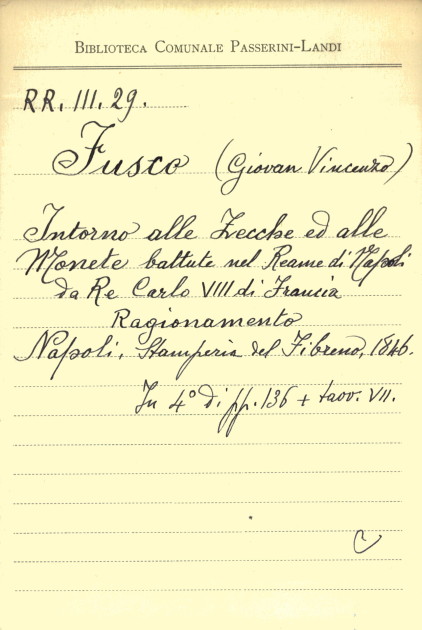 BIBLIOTECA COMUNALE PASSERINI-LANDI
RR. III. 29.
Fusco (Giovan Vincenzo)
Intorno alle Zecche ed alle
Monete battute nel Reame di Napoli
da Re Carlo VIII di Francia
Ragionamento
Napoli, Stamperia del Fibreno, 1846.
In 4° di pp. 136 + tavv. VII.